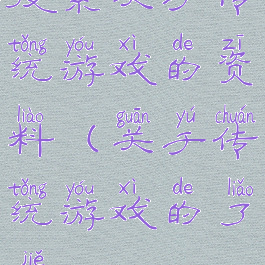 tǒng yóu xì de zī
统游戏的资
liào guān yú chuán
料(关于传
tǒng yóu xì de liǎo
统游戏的了
jiě